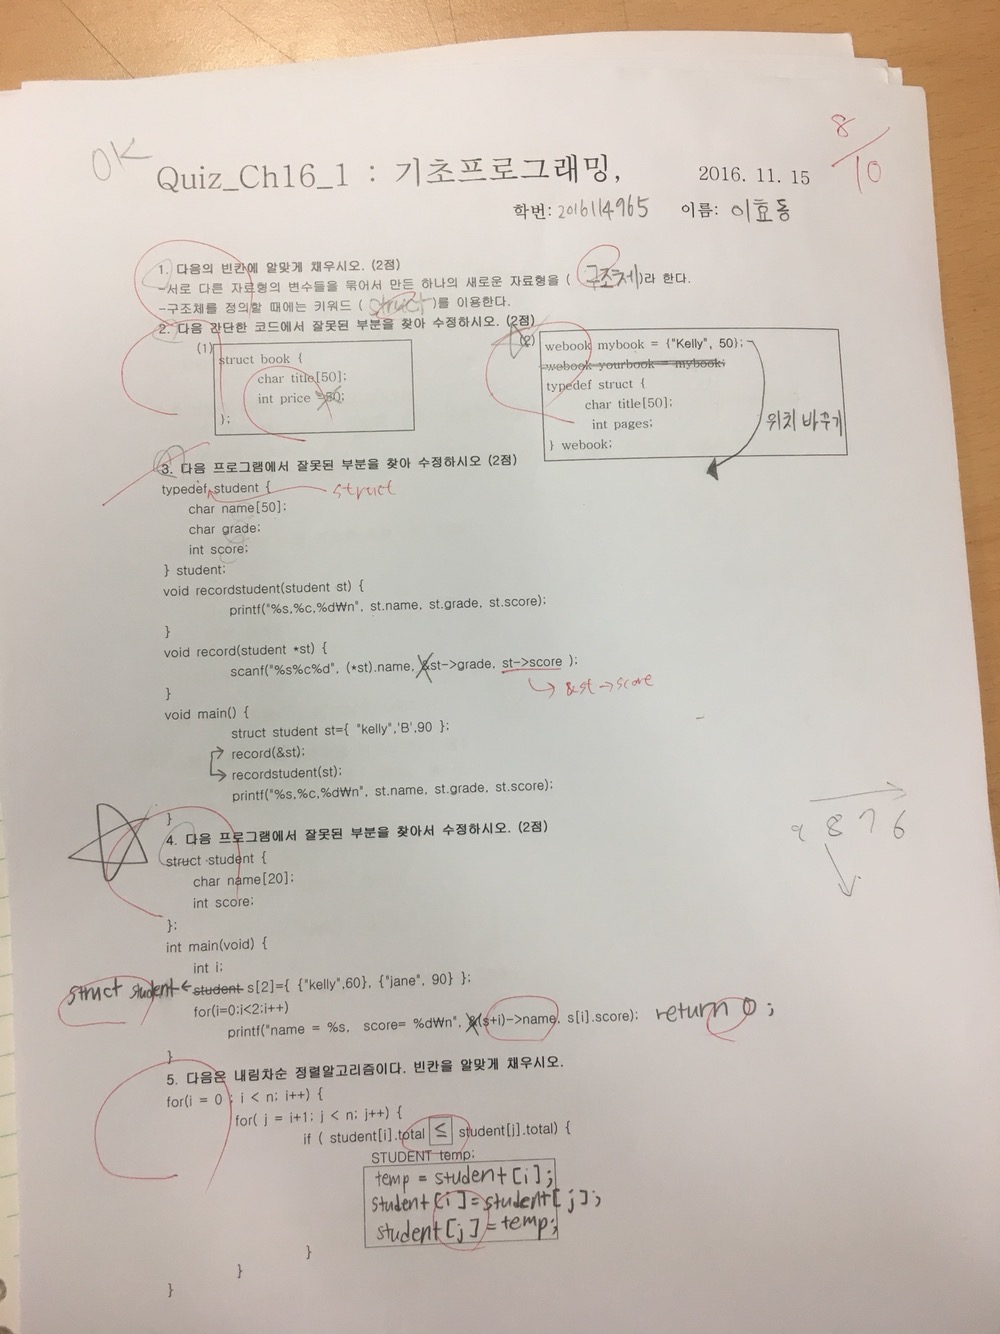 OK
8/10
Quiz_Ch16_1 : 기초프로그래밍,
2016. 11. 15
학번: 2016114965 이름: 이효동
1. 다음의 빈칸에 알맞게 채우시오. (2점)
-서로 다른 자료형의 변수들을 묶어서 만든 하나의 새로운 자료형을 ( 구조체)라 한다.
-구조체를 정의할 때에는 키워드 ( struct )를 이용한다.
2. 다음 간단한 코드에서 잘못된 부분을 찾아 수정하시오. (2점)
(1)
struct book {
char title[50];
int price =50;
};
(2)
webook mybook = {"Kelly", 50};
webook yourbook = mybook;
typedef struct {
char title[50];
int pages;
} webook;
위치 바꾸기
3. 다음 프로그램에서 잘못된 부분을 찾아 수정하시오 (2점)
typedef student {
struct
char name[50];
char grade;
int score;
} student;
void recordstudent(student st) {
printf("%s,%c,%d₩n", st.name, st.grade, st.score);
}
void record(student *st) {
scanf("%s%c%d", (*st).name, &st->grade, st->score );
&st->score
}
void main() {
struct student st={ "kelly",'B',90 };
record(&st);
recordstudent(st);
printf("%s,%c,%d₩n", st.name, st.grade, st.score);
}
9 8 7 6
4. 다음 프로그램에서 잘못된 부분을 찾아서 수정하시오. (2점)
struct student {
char name[20];
int score;
};
int main(void) {
int i;
struct student ← student s[2]={ {"kelly",60}, {"jane", 90} };
for(i=0;i<2;i++)
printf("name = %s, score= %d₩n", &(s+i)->name, s[i].score); return 0;
}
5. 다음은 내림차순 정렬알고리즘이다. 빈칸을 알맞게 채우시오.
for(i = 0 ; i < n; i++) {
for( j = i+1; j < n; j++) {
if ( student[i].total ≤ student[j].total) {
STUDENT temp;
temp = student[i];
student[i]=student[j];
student[j]=temp;
}
}
}